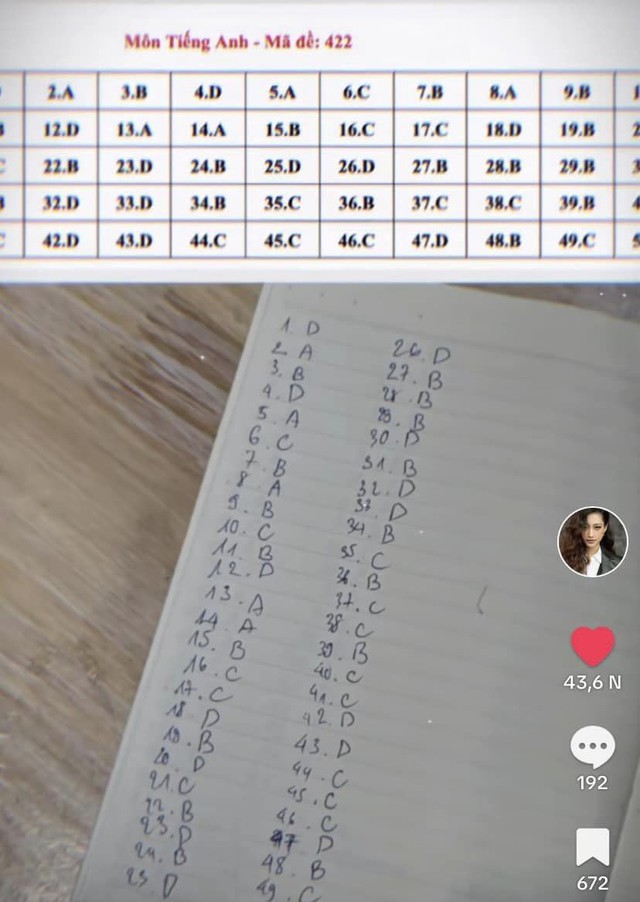 Môn Tiếng Anh - Mã đề: 422
2.A 3.B 4.D 5.A 6.C 7.B 8.A 9.B
12.D 13.A 14.A 15.B 16.C 17.C 18.D 19.B
22.B 23.D 24.B 25.D 26.D 27.B 28.B 29.B
32.D 33.D 34.B 35.C 36.B 37.C 38.C 39.B
42.D 43.D 44.C 45.C 46.C 47.D 48.B 49.C
1. D
2. A
3. B
4. D
5. A
6. C
7. B
8. A
9. B
10. C
11. B
12. D
13. A
14. A
15. B
16. C
17. C
18. D
19. B
20. D
21. C
22. B
23. D
24. B
25. D
26. D
27. B
28. B
29. B
30. D
31. B
32. D
33. D
34. B
35. C
36. B
37. C
38. C
39. B
40. C
41. C
42. D
43. D
44. C
45. C
46. C
47. D
48. B
49. C
43,6 N
192
672